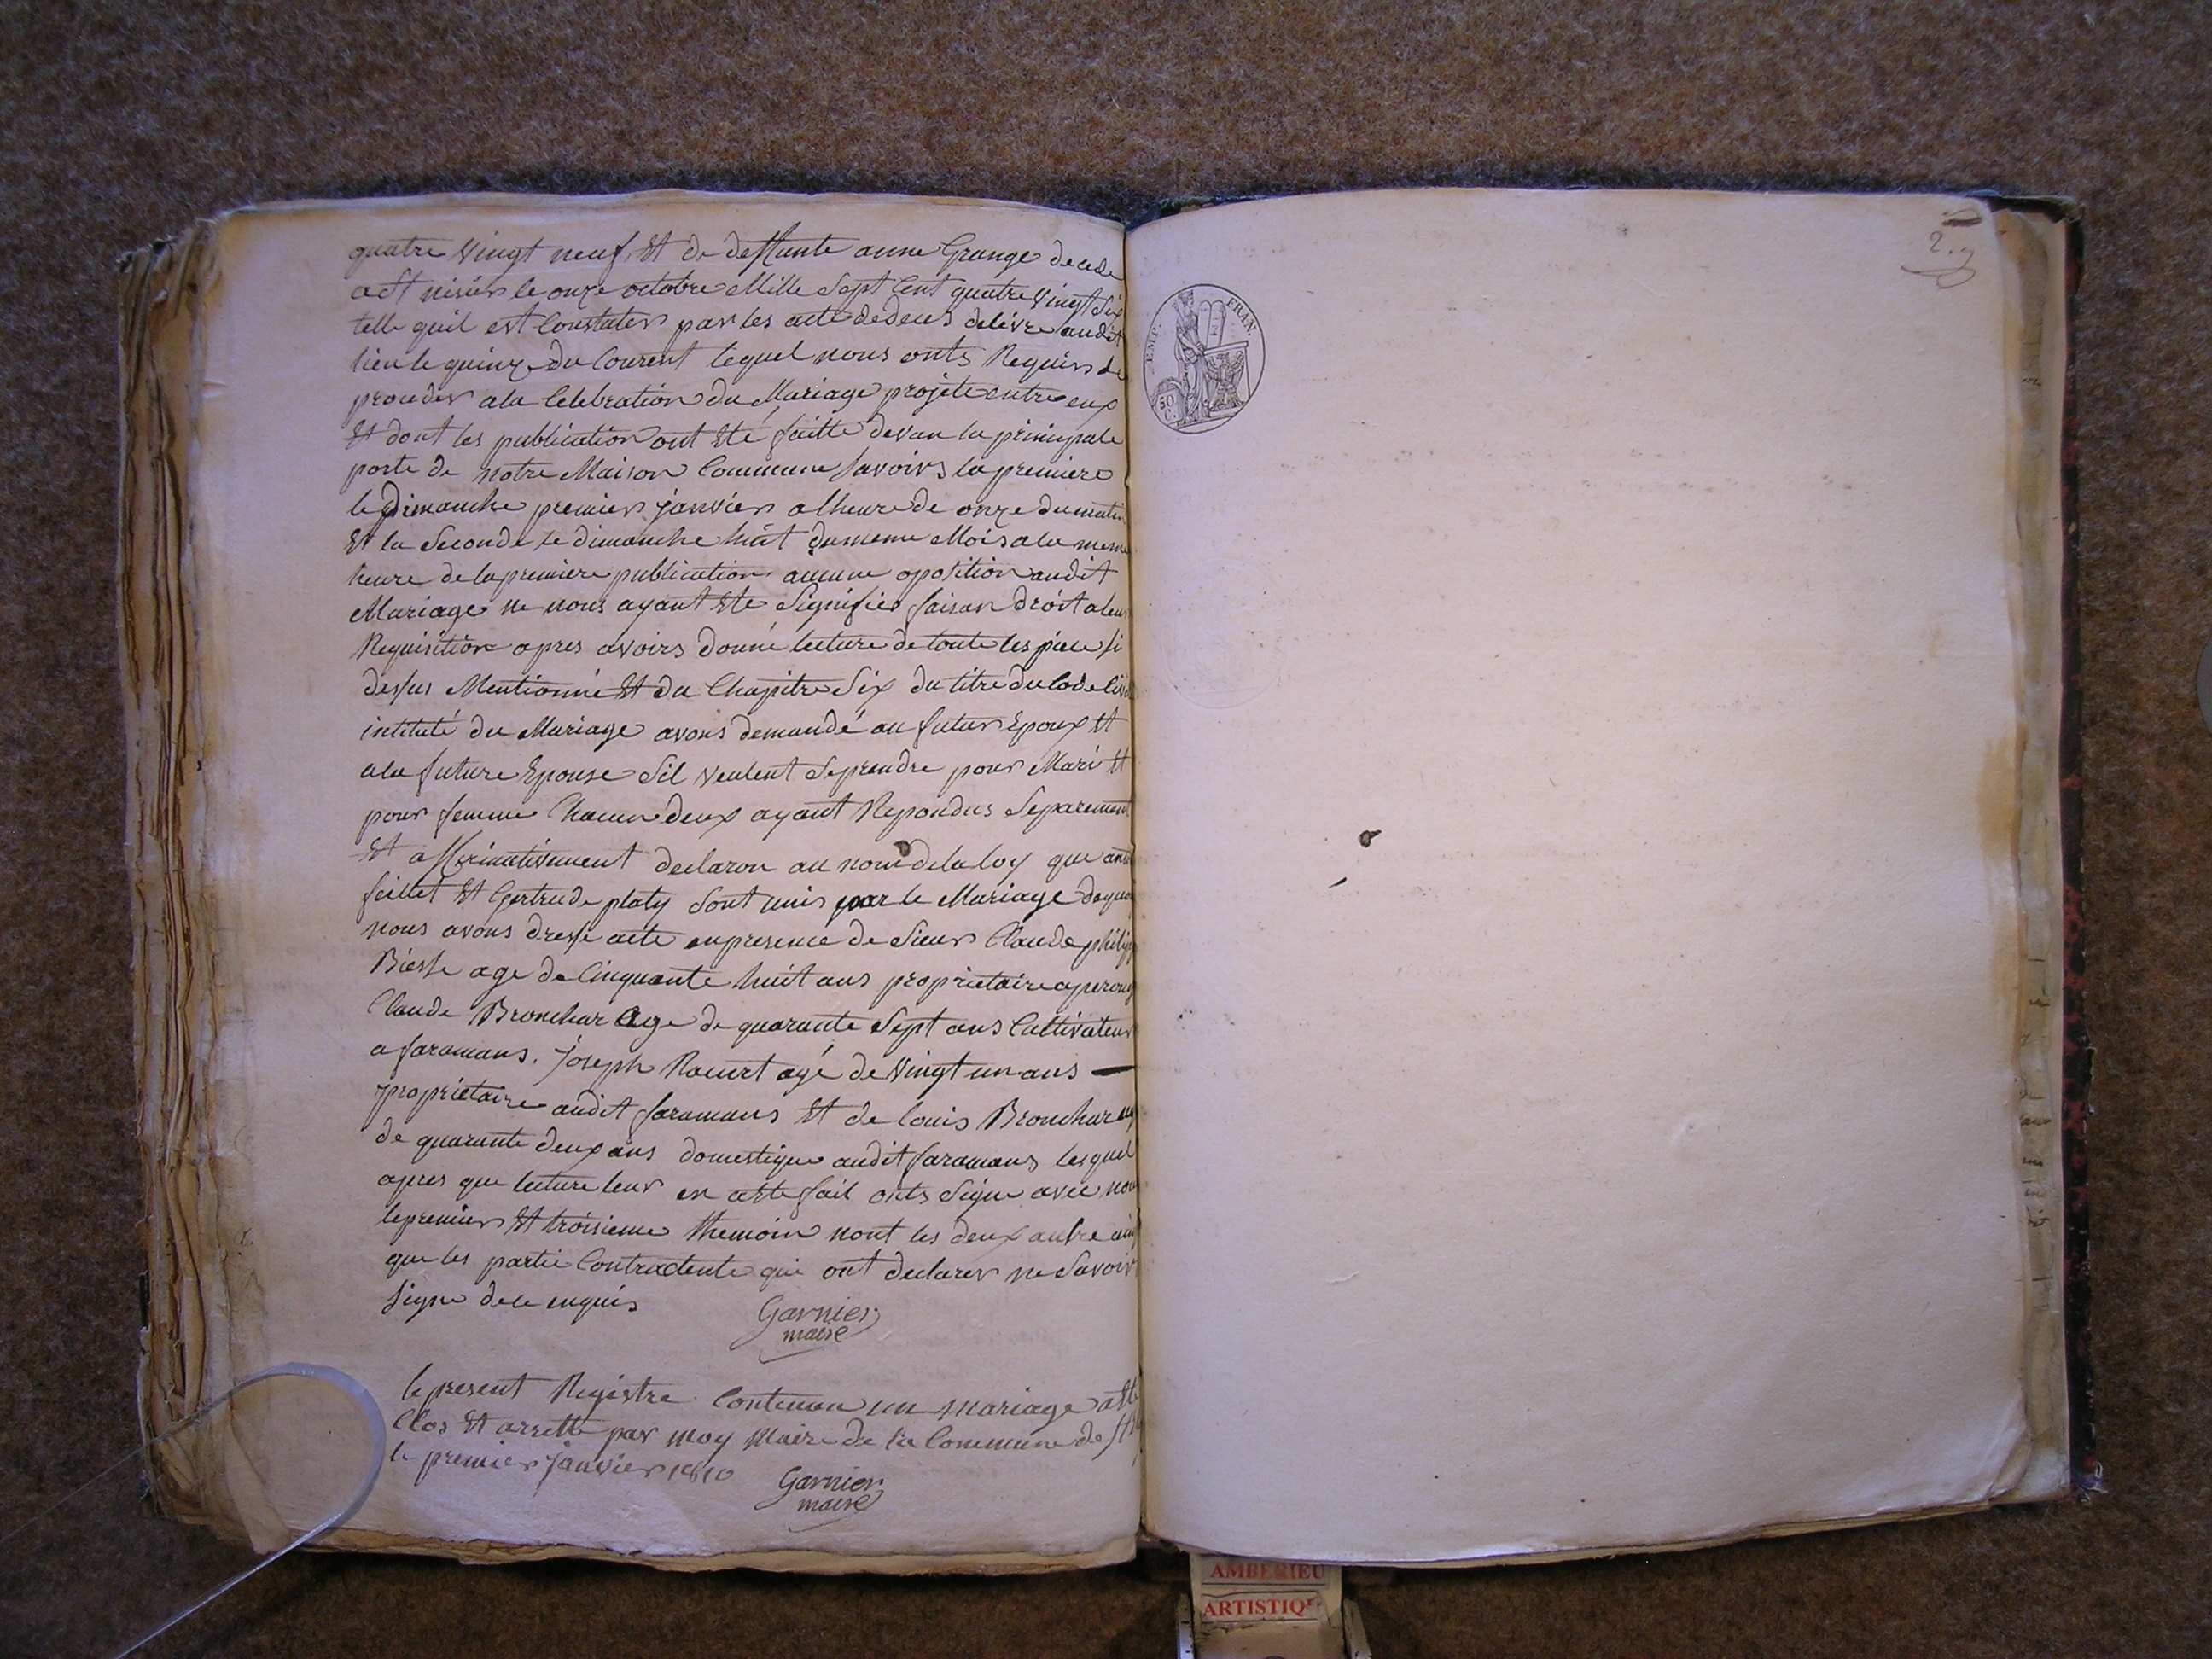 quatre Vingt neuf, Et de deffunte anne Grange decede
a st nisier le onze octobre Mille Sept Cent quatre Vingt Six
telle quil est Constater par les acte dedeces delivre audit
lieu le quinze du Courent lequel nous onts Requirs de
proceder ala Celebration du Mariage projete entre eux
Et dont les publication ont Eté faitte devan la principale
porte de notre Maison Commune Savoirs la premiere
le Dimanche premier janvier a lheure de onze du matin
Et la Seconde le dimanche huit dumeme Mois ala meme
heure de la premiere publication aucune oposition audit
Mariage ne nous ayant Ete Signifiés faisan droit aleur
Requisition apres avoirs donné lecture de toute les piece si
dessus Mentionné Et du Chapitre Six du titre du Code Civil
intitulé du Mariage avons demandé au futur Epoux Et
ala future Epouse Sil veulent Seprendre pour Mari Et
pour femme Chacun deux ayant Repondus Separement
Et affirmativement declaron au nom de la loy que
feillet Et Gertrude platy Sont unis par le Mariage dequoi
nous avons dresse acte enpresence de Sieur Claude philip
age de Cinquante huit ans proprietaire aperouge
Claude Bronchar Age de quarante Sept ans Cultivateur
a faramans. joseph Racurt agé de Vingt un ans —
proprietaire audit faramans Et de louis Bronchar
de quarante deux ans domestique audit faramans lesquel
apres que lecture leur en atte fait onts Signe avec nou
lepremier Et troisieme themoin nont les deux autre
que les partie Contractente qui ont declarer ne Savoir
Signe dece enquis
Garnier
maire
le present Registre Contenan un mariage atte
Clos Et arretté par moy Maire de la Commune de
le premier janvier 1810
Garnier
maire
2.
EMP. FRAN.
50
C.
AMBERIEU
ARTISTIQ